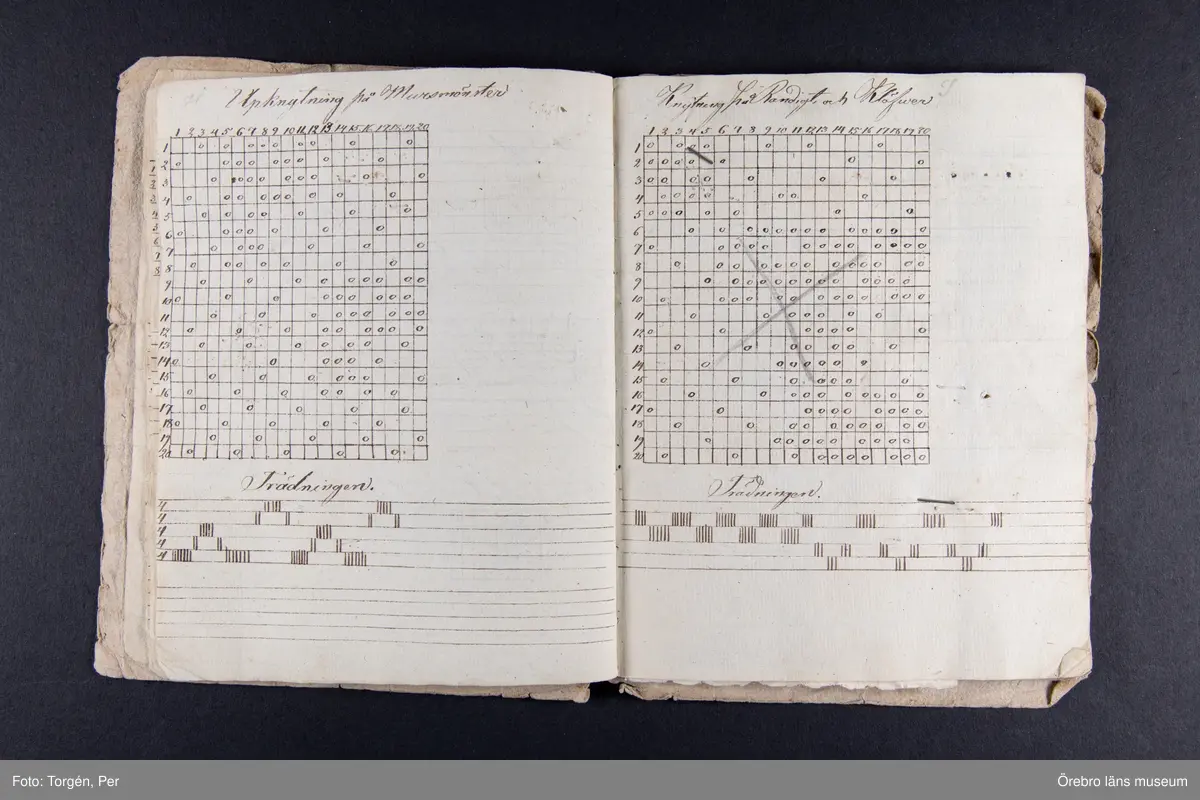 Upknytning på Mursmönster
1 2 3 4 5 6 7 8 9 10 11 12 13 14 15 16 17 18 19 20
1
2
3
4
5
6
7
8
9
10
11
12
13
14
15
16
17
18
19
20
Trädningen.
4
4
4
4
4
Knytning på Randigt och Klöfwer
1 2 3 4 5 6 7 8 9 10 11 12 13 14 15 16 17 18 19 20
1
2
3
4
5
6
7
8
9
10
11
12
13
14
15
16
17
18
19
20
Trädningen.
Foto: Torgén, Per
Örebro läns museum